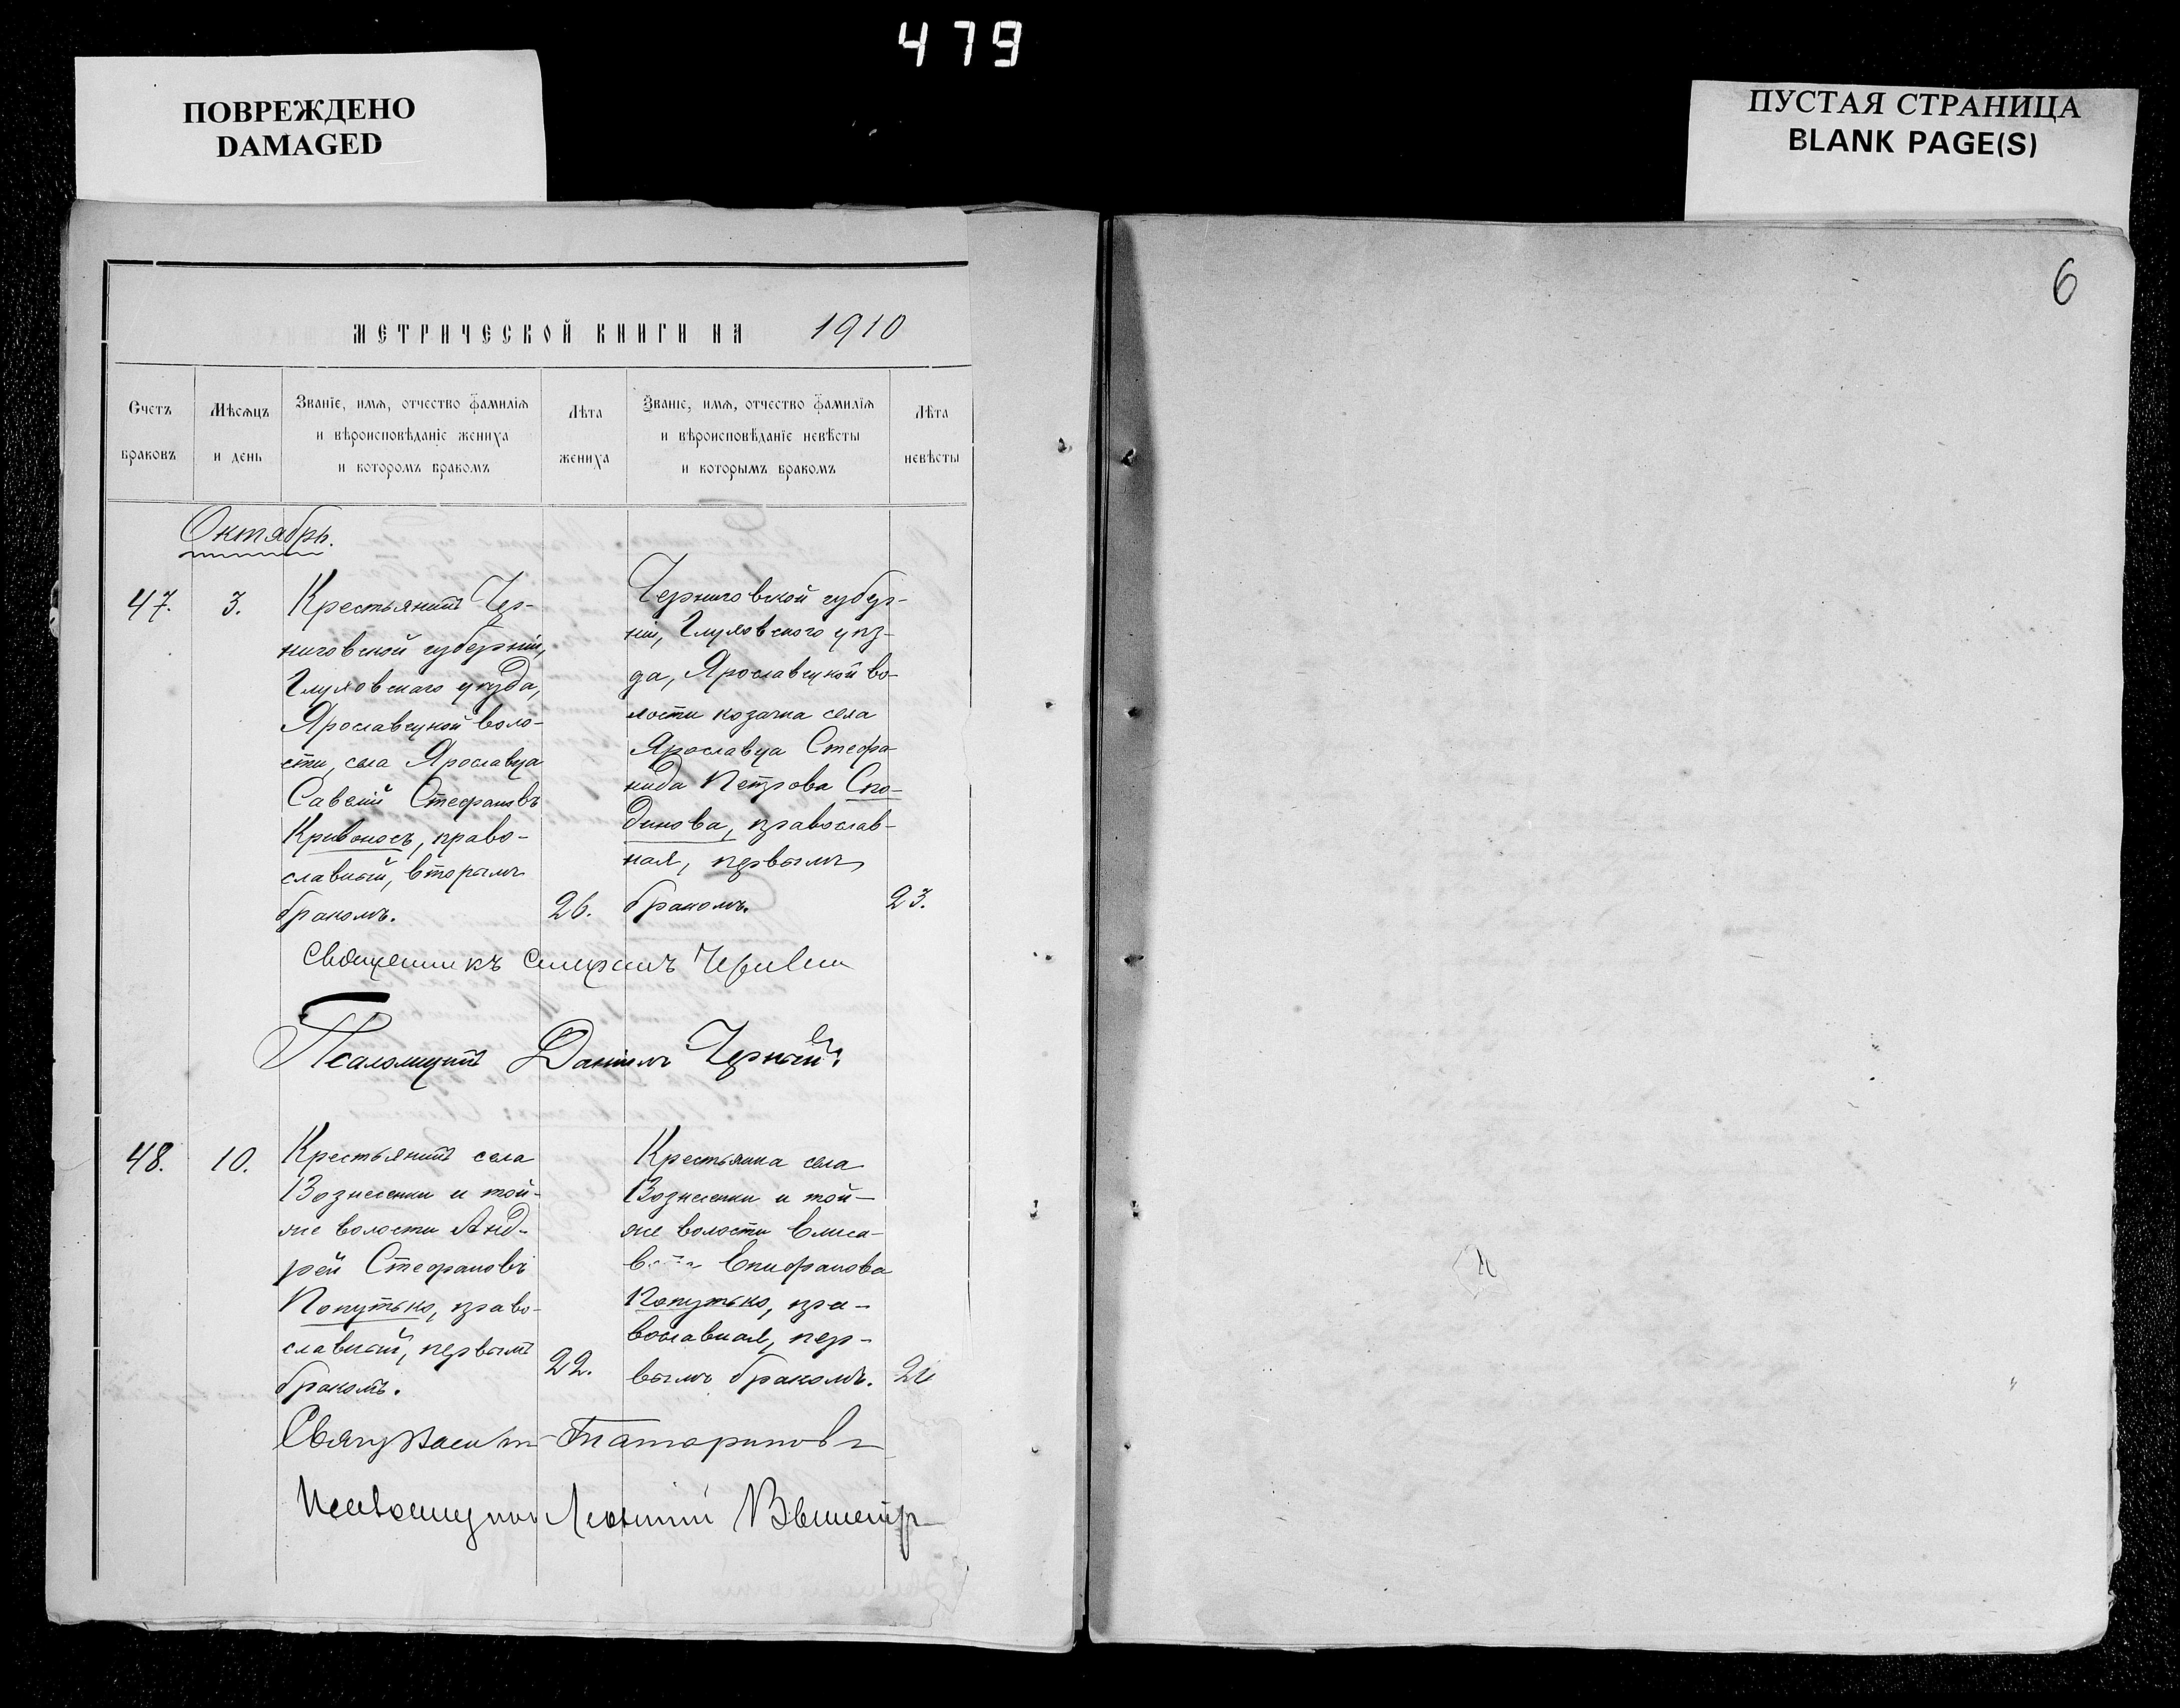 479
ПОВРЕЖДЕНО
DAMAGED
ПУСТАЯ СТРАНИЦА
BLANK PAGE(S)
6
МЕТРИЧЕСКОЙ КНИГИ НА 1910
Счетъ браковъ
Мѣсяцъ и день
Званіе, имя, отчество фамилія
и вѣроисповѣданіе жениха
и которомъ бракомъ
Лѣта жениха
Званіе, имя, отчество фамилія
и вѣроисповѣданіе невѣсты
и которымъ бракомъ
Лѣта невѣсты
Октябрь.
47. 3.
Крестьянинъ Чер-
ниговской губерніи,
Глуховскаго уѣзда,
Ярославецкой воло-
сти, села Ярославца
Савелій Стефановъ
Кривоносъ, право-
славный, вторымъ
бракомъ.
26.
Черниговской губер-
ніи, Глуховского уѣз-
да, Ярославецкой во-
лости козачка села
Ярославца Стефа-
нида Петрова Спо-
динова, православ-
ная, первымъ
бракомъ.
23.
Священникъ
Псаломщикъ Даніилъ Черный.
48. 10.
Крестьянинъ села
Вознесенки и той-
же волости Анд-
рей Стефановъ
Попутько, право-
славный, первымъ
бракомъ.
22.
Крестьянка села
Вознесенки и той-
же волости Елиса-
Епифанова
Попутько, пра-
вославная, пер-
вымъ бракомъ.
Татариновъ
Псаломщикъ Леонтій